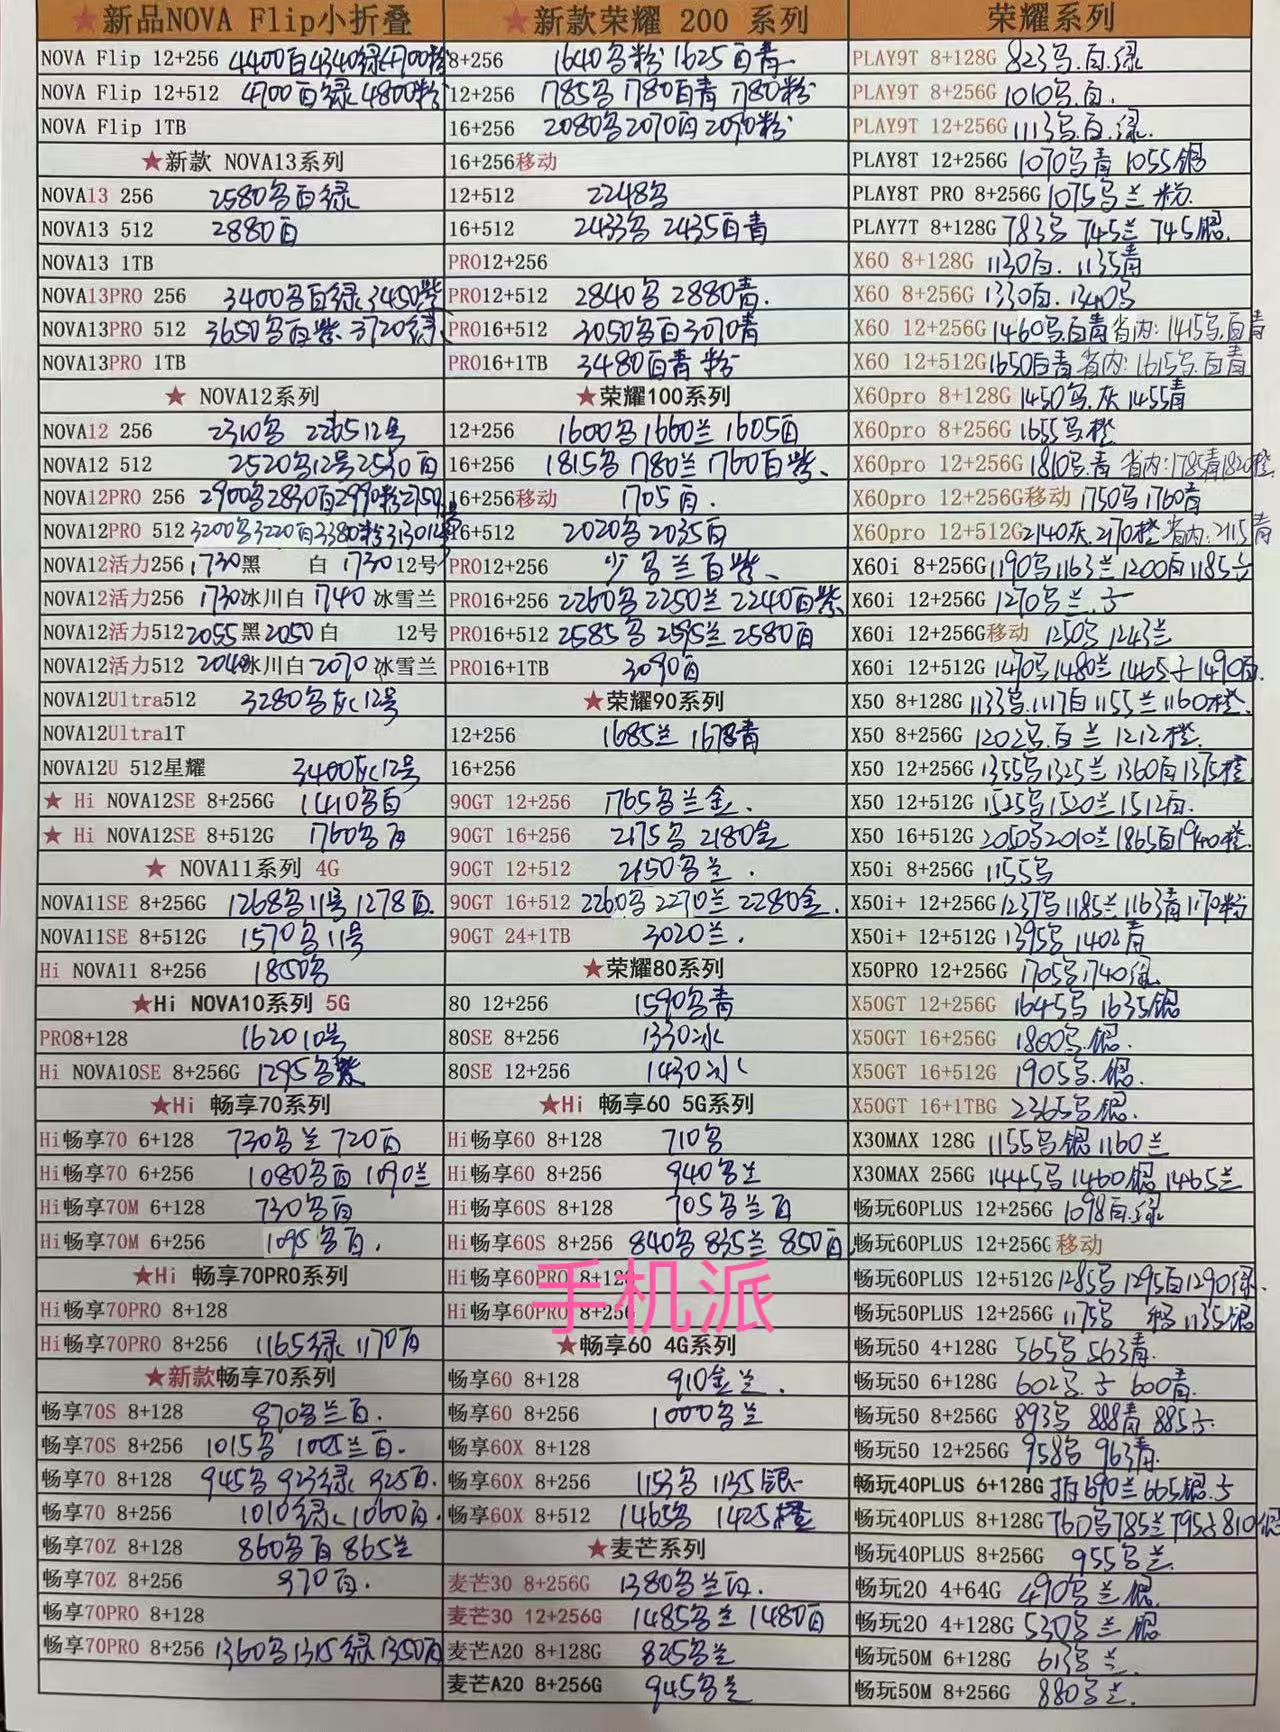 ★新品NOVA Flip小折叠
NOVA Flip 12+256 4400白4340绿4700粉
NOVA Flip 12+512 4700白绿4800粉
NOVA Flip 1TB
★新款 NOVA13系列
NOVA13 256 2580白绿
NOVA13 512 2880白
NOVA13 1TB
NOVA13PRO 256 3400白绿3450紫
NOVA13PRO 512 3650白紫 3720绿
NOVA13PRO 1TB
★ NOVA12系列
NOVA12 256 2310 2265 12号
NOVA12 512 2520 12号2530白
NOVA12PRO 256 2900 2830白2990粉2750
NOVA12PRO 512 3200 3220白3380粉3130 12号
NOVA12活力256 1730黑 白 1730 12号
NOVA12活力256 1730冰川白 1740 冰雪兰
NOVA12活力512 2055黑2050白 12号
NOVA12活力512 2040冰川白2070冰雪兰
NOVA12Ultra512 3280灰12号
NOVA12Ultra1T
NOVA12U 512星耀 3400灰12号
★ Hi NOVA12SE 8+256G 1410白
★ Hi NOVA12SE 8+512G 1760白
★ NOVA11系列 4G
NOVA11SE 8+256G 1268 11号 1278白
NOVA11SE 8+512G 1570 11号
Hi NOVA11 8+256 1850
★Hi NOVA10系列 5G
PRO8+128 1620 10号
Hi NOVA10SE 8+256G 1295紫
★Hi 畅享70系列
Hi畅享70 6+128 730兰 720白
Hi畅享70 6+256 1080白 1090兰
Hi畅享70M 6+128 730白
Hi畅享70M 6+256 1095白.
★Hi 畅享70PRO系列
Hi畅享70PRO 8+128
Hi畅享70PRO 8+256 1165绿 1170白
★新款畅享70系列
畅享70S 8+128 870兰白.
畅享70S 8+256 1015 1005兰白.
畅享70 8+128 945 923绿 925白.
畅享70 8+256 1010绿 1060白.
畅享70Z 8+128 860白 865兰
畅享70Z 8+256 970白.
畅享70PRO 8+128
畅享70PRO 8+256 1360 1315绿1350白
★新款荣耀 200 系列
8+256 1640粉 1625白青
12+256 1785 1780白青 1780粉
16+256 2080 2070白2090粉
16+256移动
12+512 2248
16+512 2433 2435白青
PRO12+256
PRO12+512 2840 2880青.
PRO16+512 3050白3070青
PRO16+1TB 3480白青 粉
★荣耀100系列
12+256 1600 1660兰 1605白
16+256 1815 1780兰 1760白紫
16+256移动 1705白.
16+512 2020 2035白
PRO12+256 少 兰白紫
PRO16+256 2260 2250兰 2240白紫
PRO16+512 2585 2595兰 2580白
PRO16+1TB 3090白
★荣耀90系列
12+256 1685兰 1678青
16+256
90GT 12+256 1765兰金.
90GT 16+256 2175 2180金
90GT 12+512 2150兰.
90GT 16+512 2260 2270兰 2280金.
90GT 24+1TB 3020兰.
★荣耀80系列
80 12+256 1590青
80SE 8+256 1330冰
80SE 12+256 1430冰
★Hi 畅享60 5G系列
Hi畅享60 8+128 710
Hi畅享60 8+256 940兰
Hi畅享60S 8+128 705兰白
Hi畅享60S 8+256 840 835兰 850白
Hi畅享60PRO 8+128
Hi畅享60PRO 8+256
手机派
★畅享60 4G系列
畅享60 8+128 910金兰.
畅享60 8+256 1000兰
畅享60X 8+128
畅享60X 8+256 1153 1135银
畅享60X 8+512 1465 1425橙
★麦芒系列
麦芒30 8+256G 1380兰白.
麦芒30 12+256G 1485兰 1480白
麦芒A20 8+128G 825兰
麦芒A20 8+256G 945兰
荣耀系列
PLAY9T 8+128G 823.白.绿
PLAY9T 8+256G 1010.白.
PLAY9T 12+256G 1113.白.绿.
PLAY8T 12+256G 1070青 1055银
PLAY8T PRO 8+256G 1075兰 粉.
PLAY7T 8+128G 783 745兰 745银.
X60 8+128G 1130白. 1135青
X60 8+256G 1330白. 1340
X60 12+256G 1460.白青 省内:1415.白青
X60 12+512G 1650白青 省内:1615.白青
X60pro 8+128G 1450.灰 1455青
X60pro 8+256G 1655橙
X60pro 12+256G 1810.青 省内:1785青1820橙
X60pro 12+256G移动 1750 1760青
X60pro 12+512G 2140灰.2170橙 省内:2115青
X60i 8+256G 1190 1163兰 1200白 1185
X60i 12+256G 1270兰.
X60i 12+256G移动 1250 1243兰
X60i 12+512G 1470 1480兰 1465 1490白.
X50 8+128G 1133.1117白 1155兰 1160橙.
X50 8+256G 1202.白 兰 1212橙.
X50 12+256G 1355 1325兰 1360白 1375橙
X50 12+512G 1525 1520兰 1512白.
X50 16+512G 2050 2010兰 1865白1940橙
X50i 8+256G 1155
X50i+ 12+256G 1237 1185兰 1163青 1170粉
X50i+ 12+512G 1395 1402青
X50PRO 12+256G 1705 1740绿
X50GT 12+256G 1645 1635银
X50GT 16+256G 1800.银.
X50GT 16+512G 1905.银.
X50GT 16+1TBG 2365银.
X30MAX 128G 1155银 1160兰
X30MAX 256G 1445 1460银 1465兰
畅玩60PLUS 12+256G 1098白.绿
畅玩60PLUS 12+256G 移动
畅玩60PLUS 12+512G 1285 1295白1290绿.
畅玩50PLUS 12+256G 1175 1135银
畅玩50 4+128G 565 563青.
畅玩50 6+128G 602. 600青.
畅玩50 8+256G 893 888青 885
畅玩50 12+256G 958 963青.
畅玩40PLUS 6+128G 690兰 665银.
畅玩40PLUS 8+128G 760 785兰 795 810银
畅玩40PLUS 8+256G 955兰
畅玩20 4+64G 490兰 银.
畅玩20 4+128G 530兰 银
畅玩50M 6+128G 613 兰.
畅玩50M 8+256G 880兰.